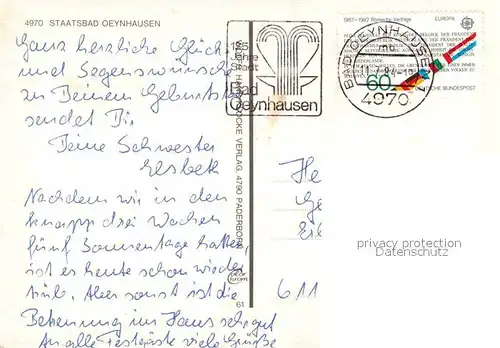 4970 STAATSBAD OEYNHAUSEN
Ganz herzliche Glück-
und Segenswünsche
zu Deinem Geburtstag
sendet Dir
Deine Schwester
Elsbeth
Nachdem wir in den
knapp drei Wochen
fünf Sonnentage hatten,
ist es heute schon wieder
trüb. Aber sonst ist die
Betreuung im Haus sehr gut
An alle Festgäste viele Grüße
125
Jahre
Stadt
Bad
Oeynhausen
VERLAG, 4790 PADERBORN
61
1957-1982 Römische Verträge
EUROPA
60
DEUTSCHE BUNDESPOST
BAD OEYNHAUSEN
4970
He
Ge
611
privacy protection
Datenschutz